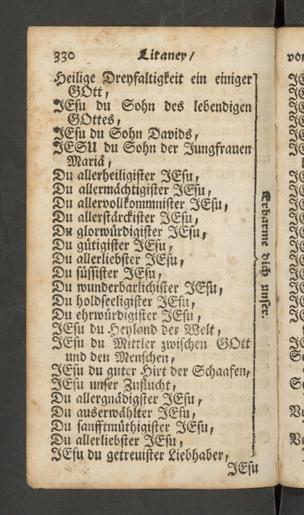 330 Litaney/
Heilige Dreyfaltigkeit ein einiger
GOtt,
JEsu du Sohn des lebendigen
GOttes,
JEsu du Sohn Davids,
JESU du Sohn der Jungfrauen
Mariä,
Du allerheiligister JEsu,
Du allermächtigister JEsu,
Du allervollkommnister JEsu,
Du allerstärckister JEsu,
Du glorwürdigister JEsu,
Du gütigister JEsu,
Du allerliebster JEsu,
Du süssister JEsu,
Du wunderbarlichister JEsu,
Du holdseeligister JEsu,
Du ehrwürdigister JEsu,
JEsu du Heyland der Welt,
JEsu du Mittler zwischen GOtt
und den Menschen,
JEsu du guter Hirt der Schaafen,
JEsu unser Zuflucht,
Du allergnädigster JEsu,
Du auserwählter JEsu,
Du sanfftmüthigister JEsu,
Du allerliebster JEsu,
JEsu du getreuister Liebhaber,
JEsu
Erbarme dich unser.